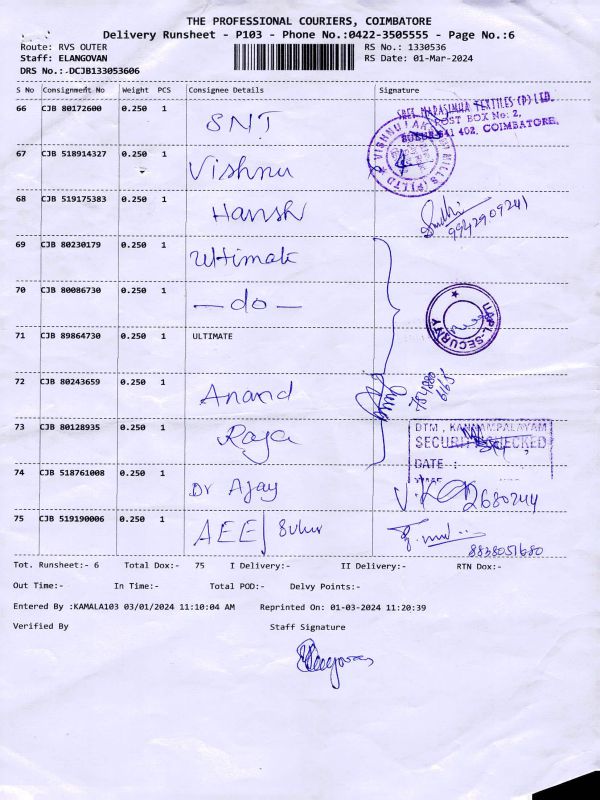 THE PROFESSIONAL COURIERS, COIMBATORE
Delivery Runsheet - P103 - Phone No.:0422-3505555 - Page No.:6
Route: RVS OUTER
RS No.: 1330536
Staff: ELANGOVAN
RS Date: 01-Mar-2024
DRS No.:-DCJB133053606
S No Consignment No Weight PCS Consignee Details Signature
66 CJB 80172600 0.250 1 SNT
TEXTILES (P) LTD.
POST BOX No: 2,
SULUR 641 402, COIMBATORE.
67 CJB 518914327 0.250 1 Vishnu
MILLS (P) LTD
68 CJB 519175383 0.250 1 Harish
69 CJB 80230179 0.250 1 Ultimate
70 CJB 80086730 0.250 1 — do —
SECURITY
71 CJB 89864730 0.250 1 ULTIMATE
72 CJB 80243659 0.250 1 Anand
73 CJB 80128935 0.250 1 Raja
DTM, KANNAMPALAYAM
SECURITY CHECKED
DATE :
74 CJB 518761008 0.250 1 Dr Ajay
2680244
75 CJB 519190006 0.250 1 AEE| Sulur
8838051680
Tot. Runsheet:- 6 Total Dox:- 75 I Delivery:- II Delivery:- RTN Dox:-
Out Time:- In Time:- Total POD:- Delvy Points:-
Entered By :KAMALA103 03/01/2024 11:10:04 AM Reprinted On: 01-03-2024 11:20:39
Verified By Staff Signature